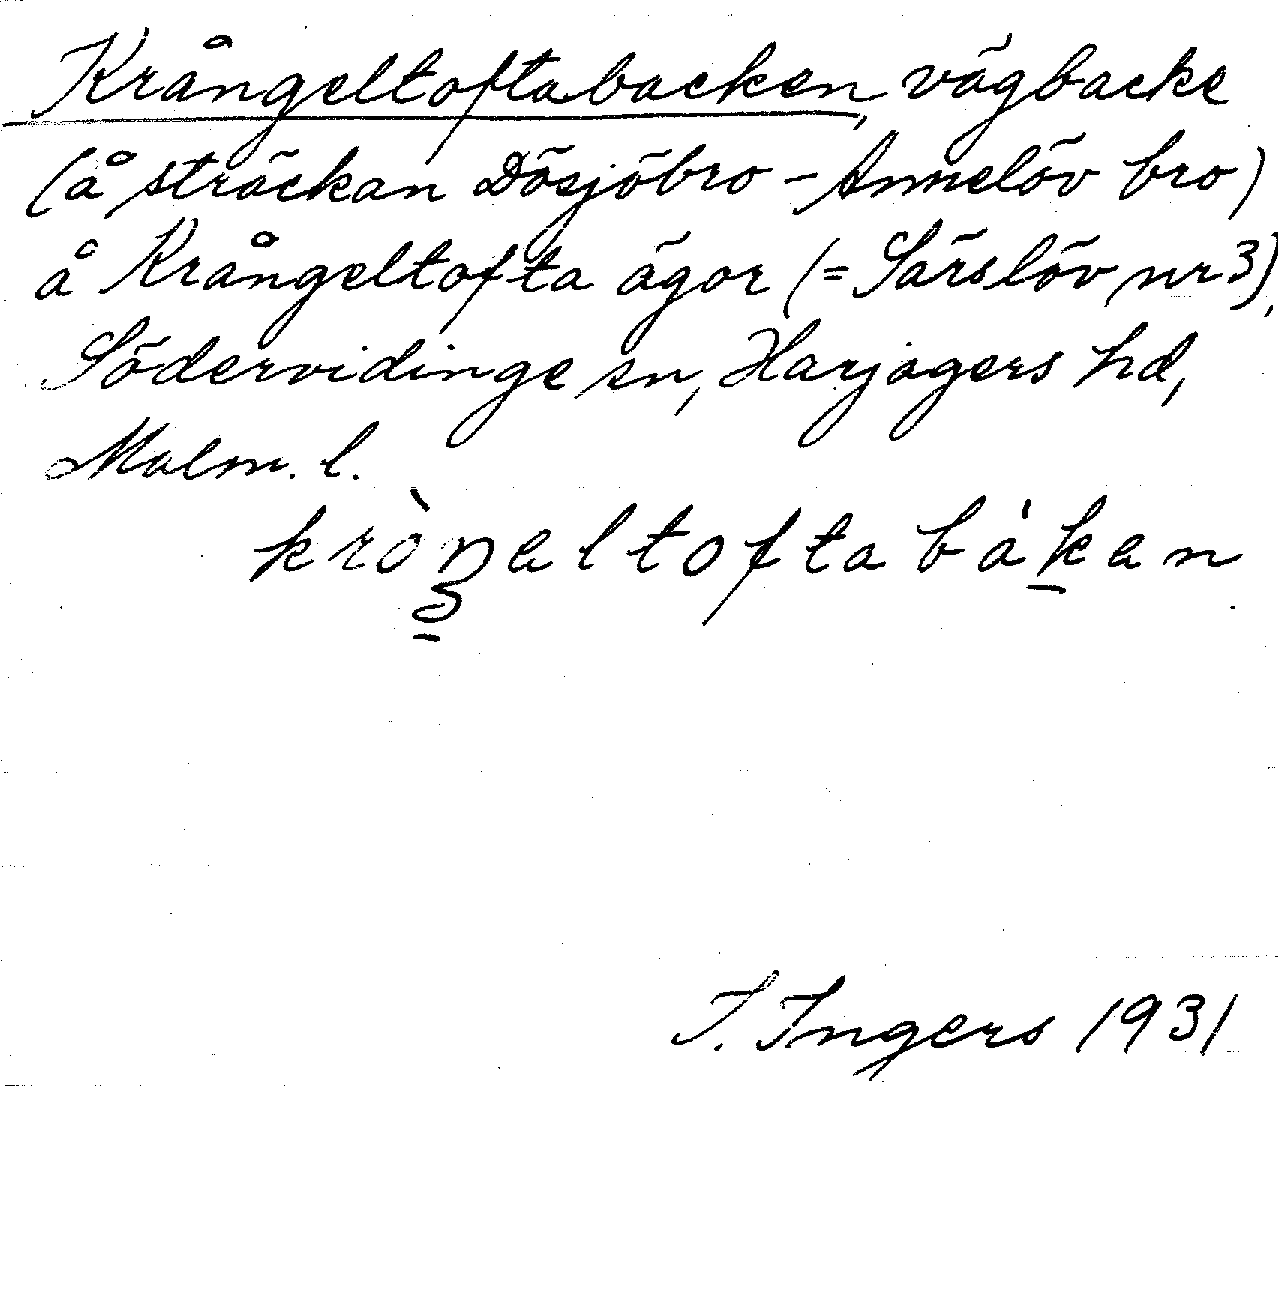 Krångeltoftabacken, vägbacke
(å sträckan Dösjöbro – Annelöv bro)
å Krångeltofta ägor (= Särslöv nr 3),
Södervidinge sn, Harjagers hd,
Malm. l.
kròŋəltofta bákən
I. Ingers 1931